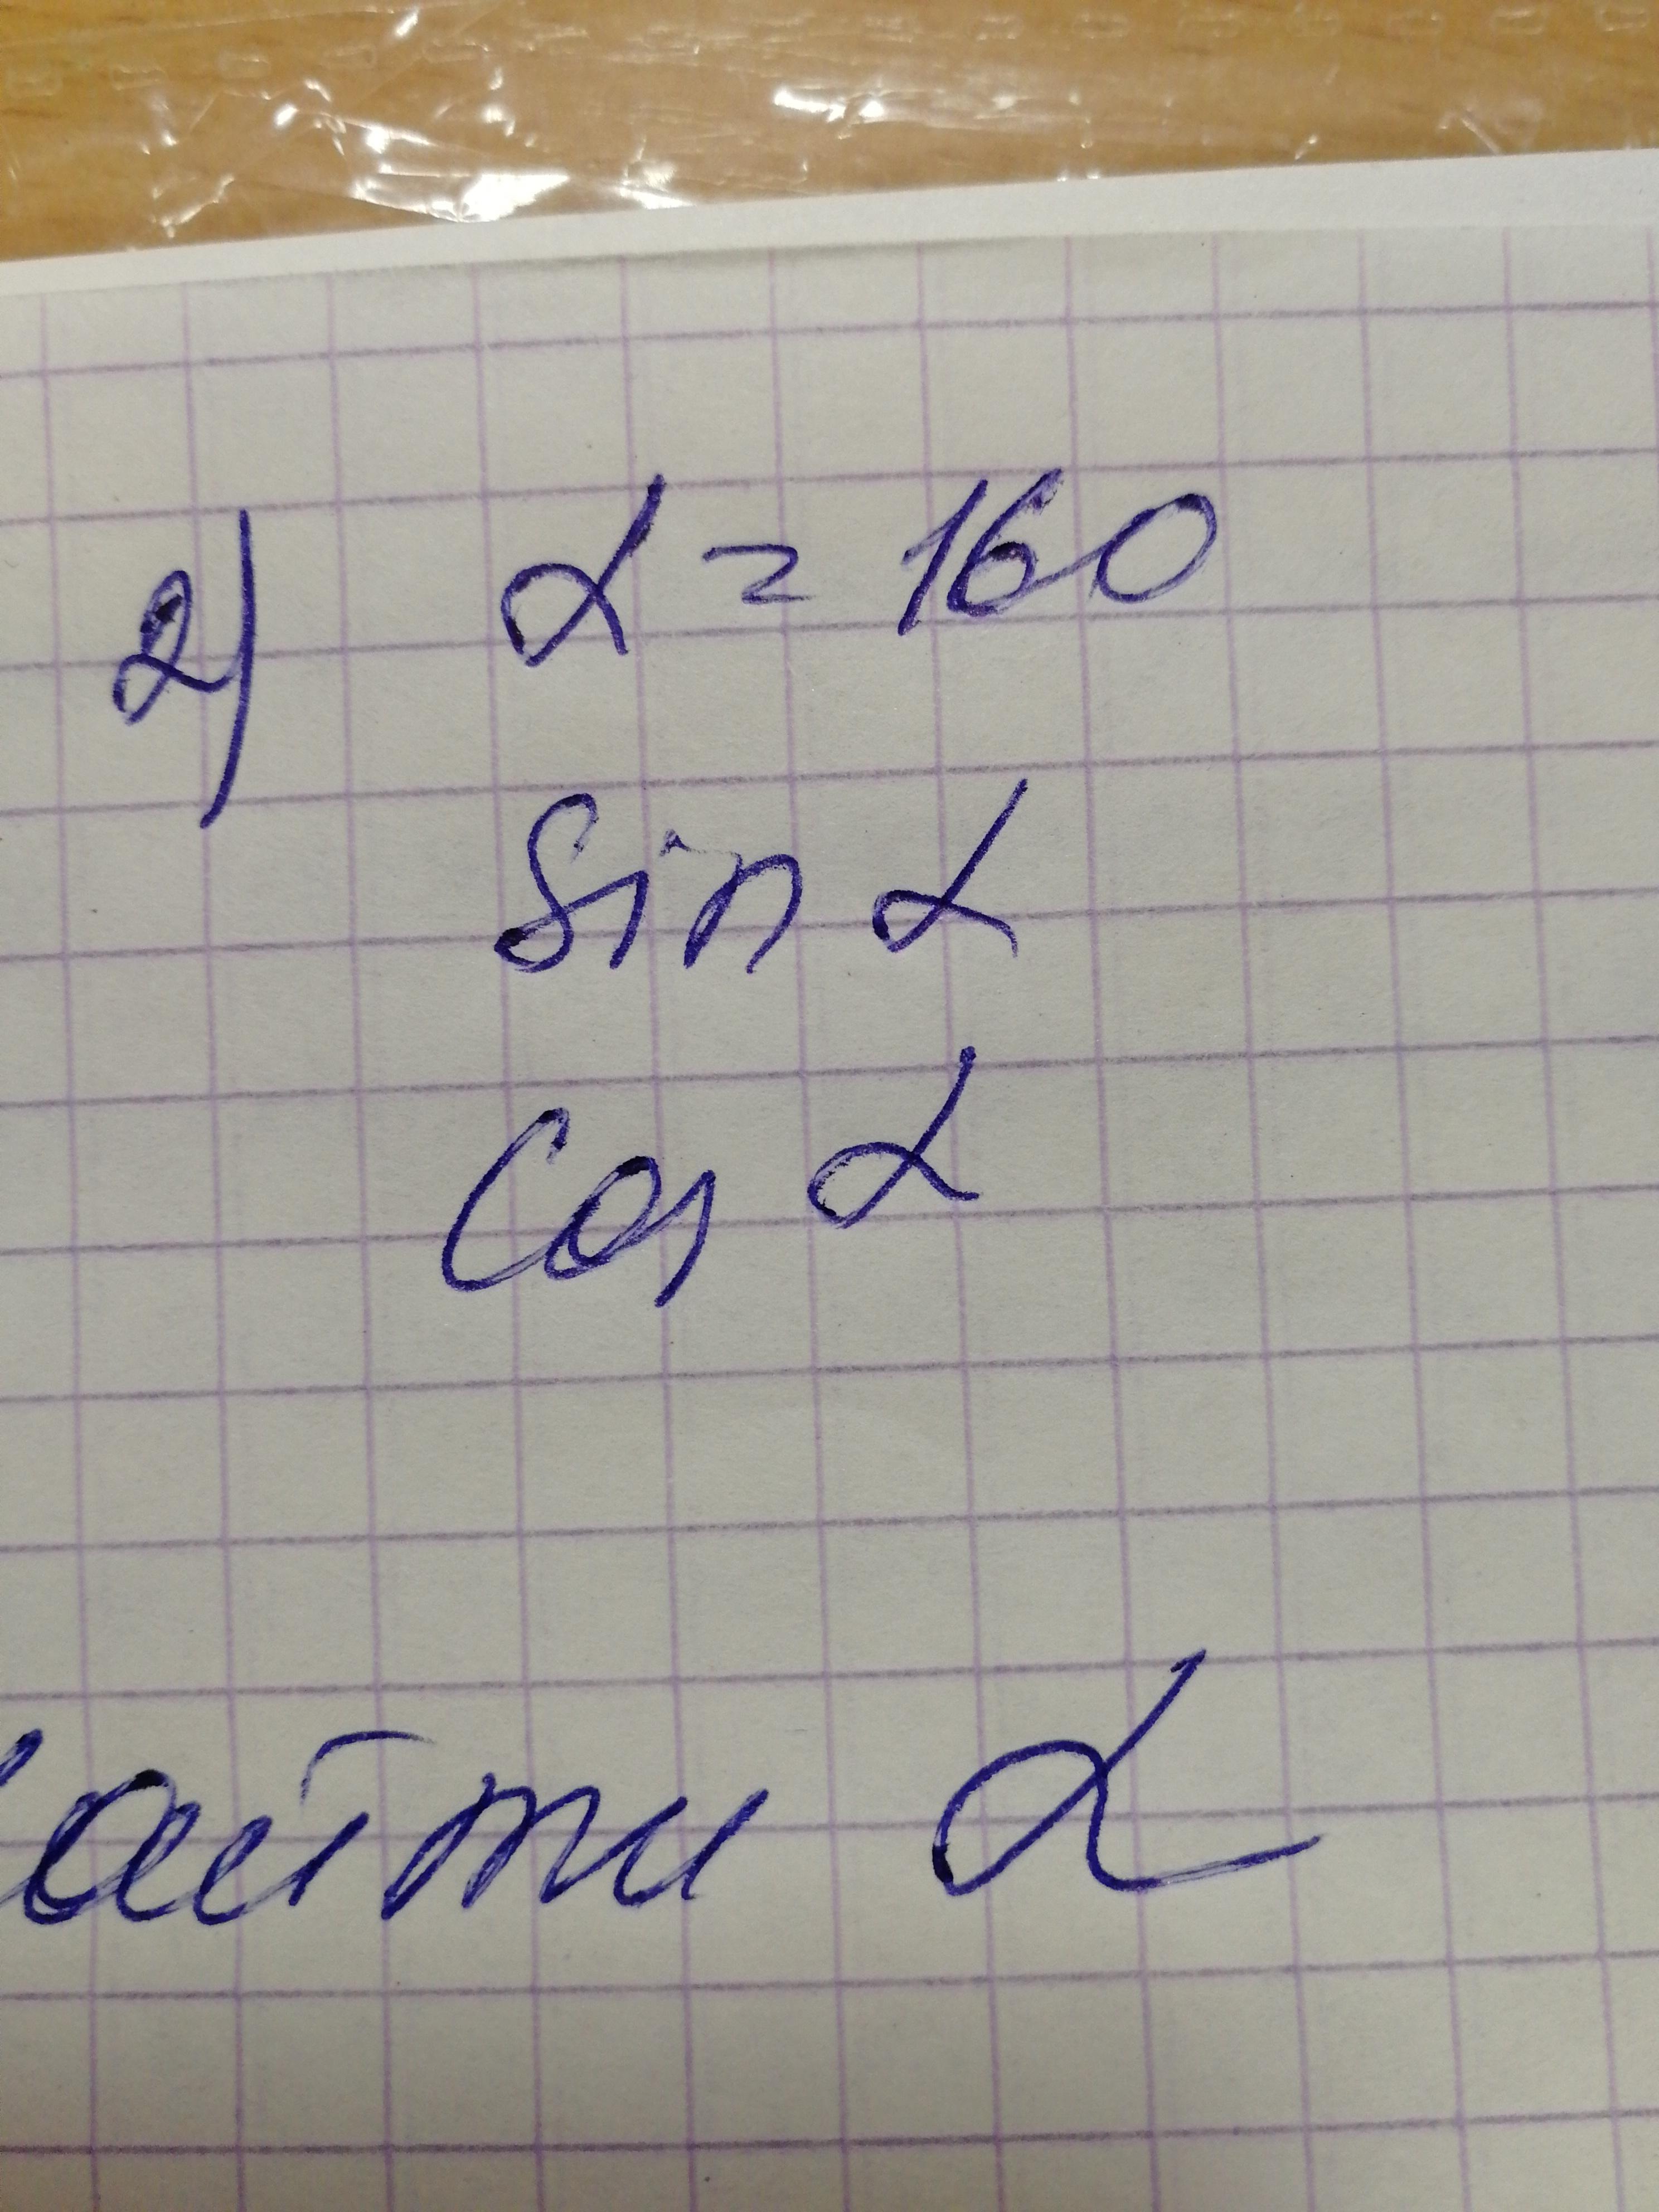 2) α = 160
sin α
cos α
айти α